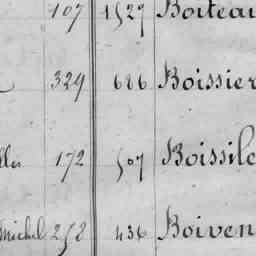 107 1527 Boiteau
329 686 Boissier
172 507 Boissile
michel 258 436 Boiven